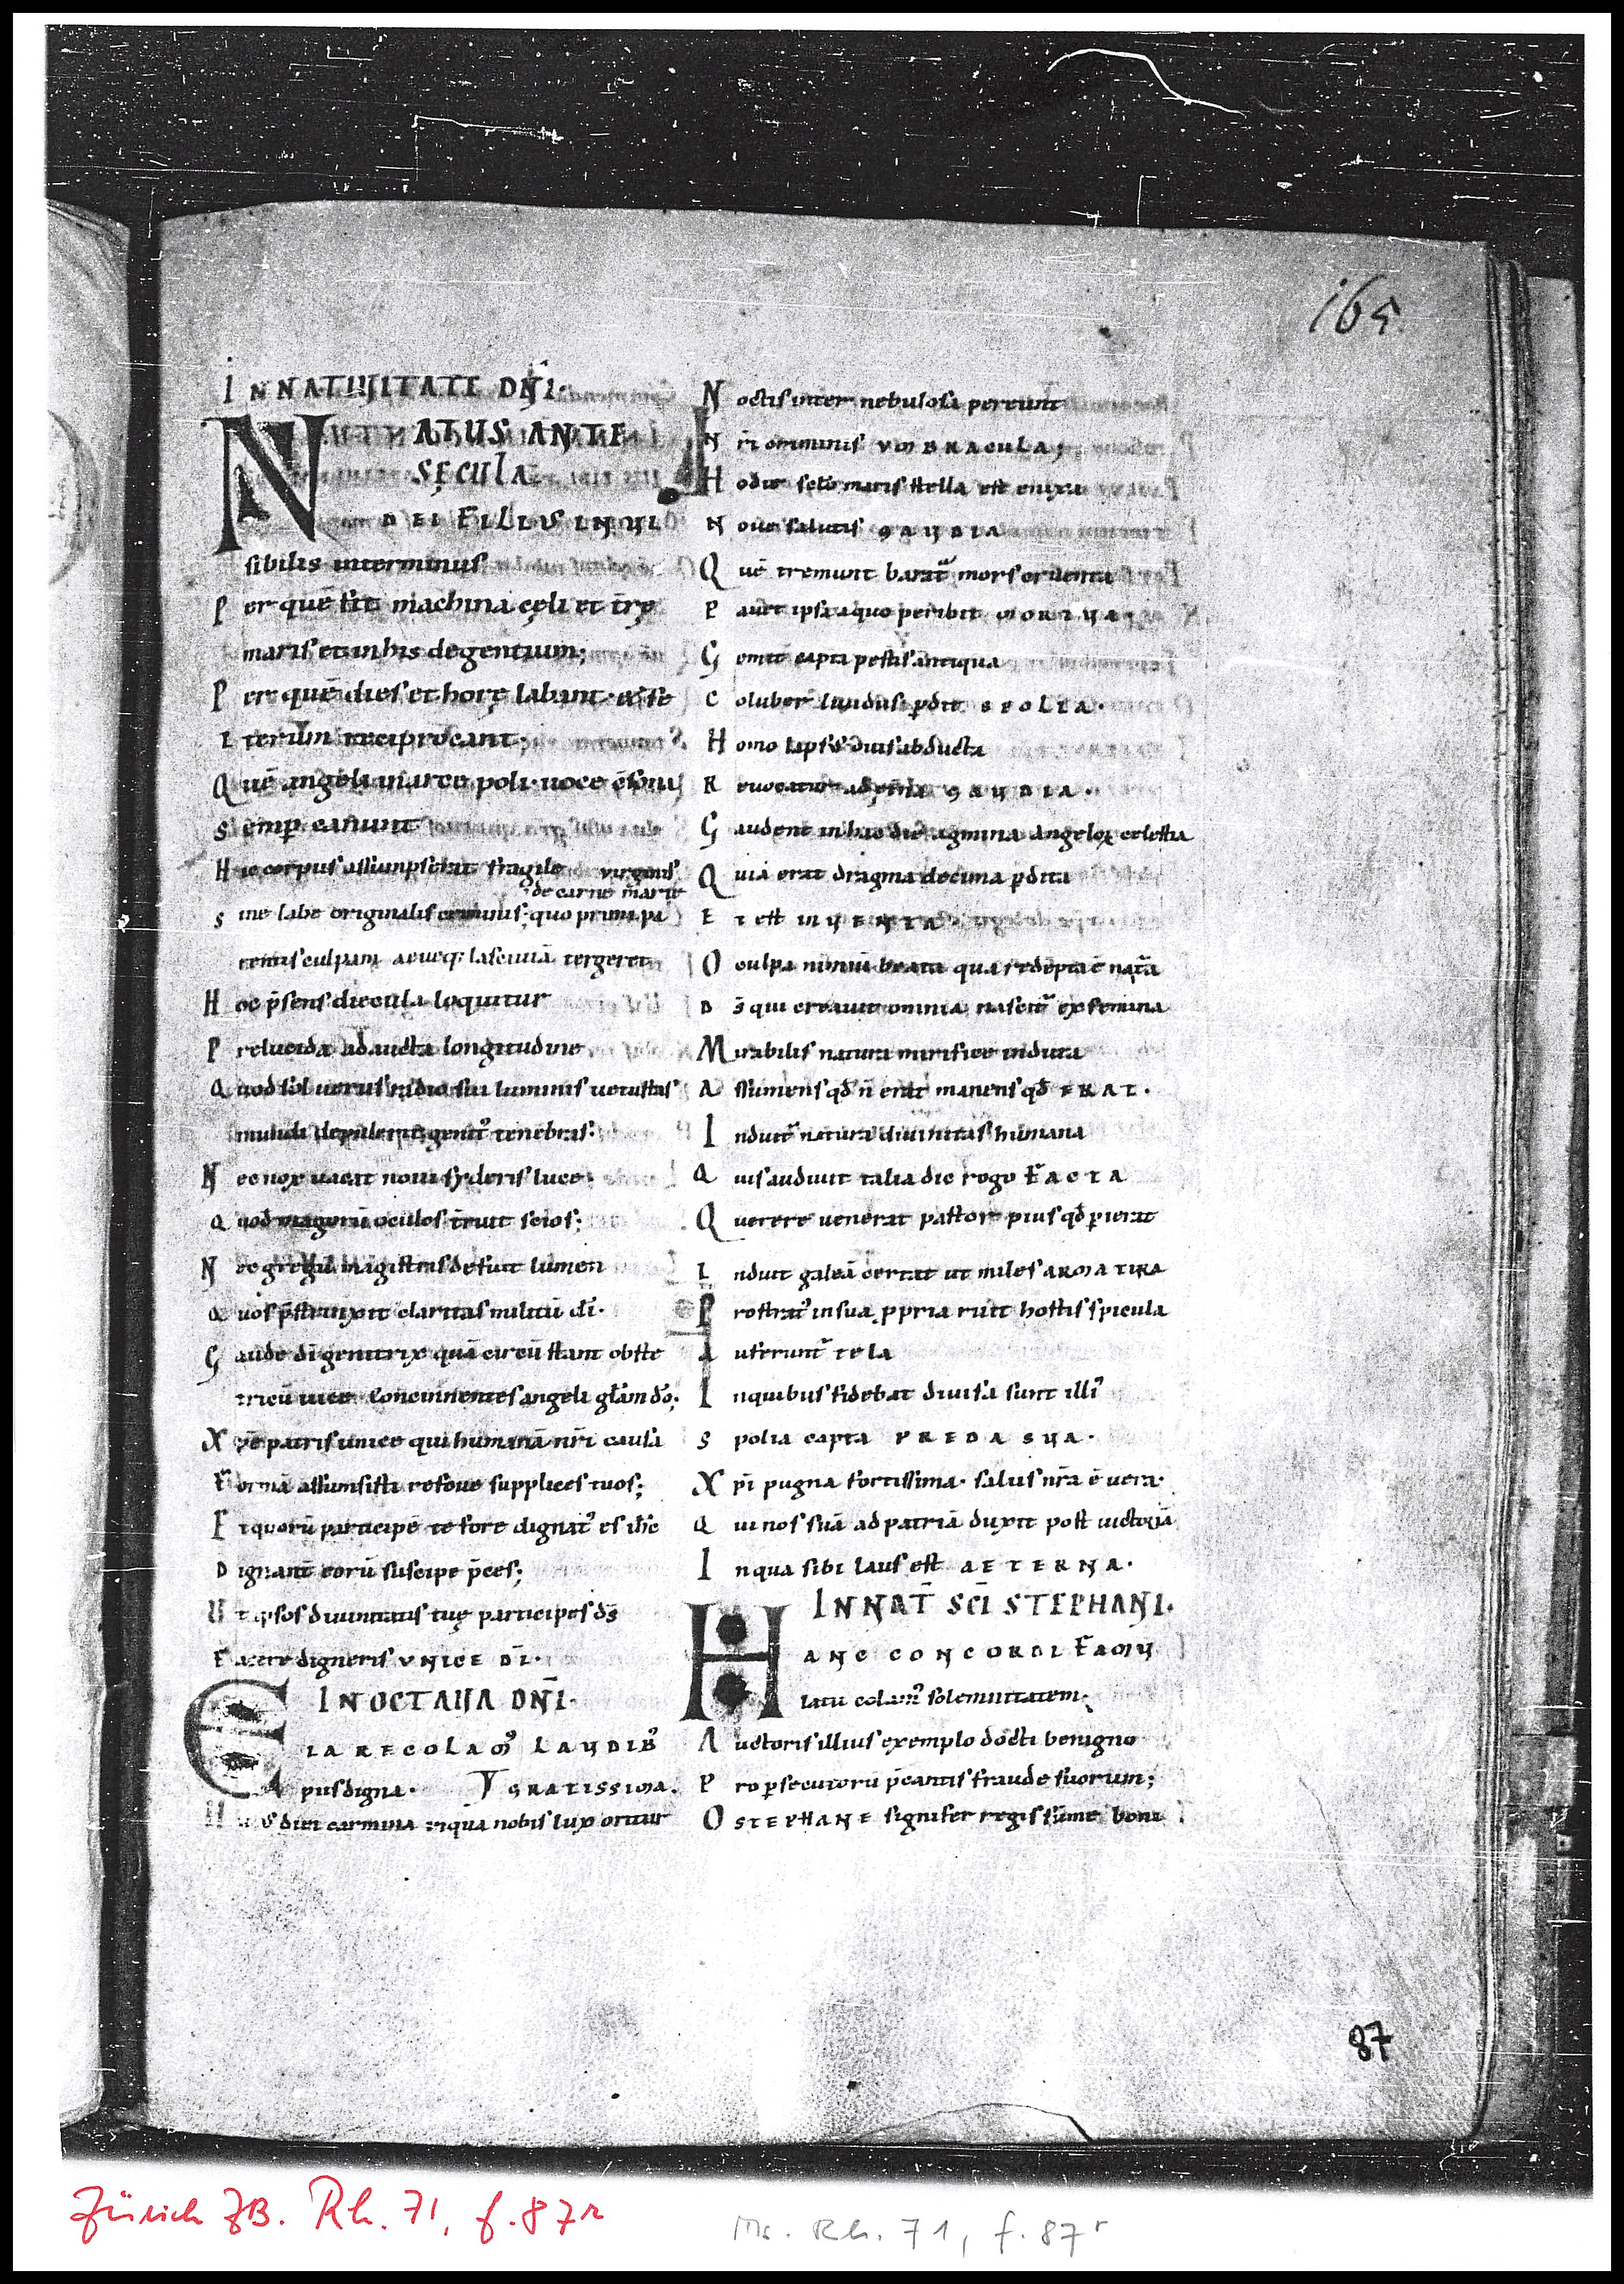 165
IN NATIUITATE DN̄I·
NATUS ANTE
SĘCULA
DEI FILIUS INUI
sibilis interminus
Per quē fit machina cęli et trę
maris et in his degentium;
Per quē dies et horę labant et se
Iterum reciprocant;
Quē angeli in arce poli uoce c̄sona
Semp canunt
Hic corpus assumpserat fragile virginis
de carne marię
Sine labe originalis criminis; quo primi pa
rentis culpam aeueq; lasciuiā tergeret
Hoc p̄sens diecula loquitur
Prelucida adaucta longitudine
Quod sol uerus radio sui luminis uetustas
mundi depulerit genit᾿ tenebras·
Nec nox uacat noui syderis luce·
Quod magorū oculos t̄ruit scios;
Nec gregū magistris defuit lumen
Quos p̄strinxit claritas militū dī·
Gaude dī genitrix quā circū stant obste
tricū uice Concinentes angeli gl̄am dō;
Xp̄e patris unice qui humanā nr̄i causa
Formā assumsisti refoue supplices tuos;
Et quorū participē te fore dignat᾿ es ih̄c
Dignant̄ eorū suscipe p̄ces;
Ut ipsos diuinitatis tuę participes d̄s
Facere digneris VNICE DĪ·
IN OCTAUA DN̄I·
EIA RECOLAM᾿ LAUDIB᾿
pus digna· GRATISSIMA.
Huius diei carmina inqua nobis lux oritur
Noctis inter nebulosa pereunt
Nr̄i criminis VMBRACULA;
Hodie sclō maris stella est enixa
Noue salutis GAUDIA
Quē tremunt barat̄ mors cruenta
Pauet ipsa a quo peribit MORTUA·
Gemit capta pestis antiqua
Coluber liuidus pdit SPOLIA·
Homo laps᾿ ouis abducta
Reuocatur ad et̄na GAUDIA·
Gaudent in hac die agmina angeloꝝ celestia
Quia erat dragma decima pdita
Et est INUENTA
O culpa nimiū beata qua redēpta ē nat̄a
D s̄ qui creauit omnia nascit̄ ex femina
Mirabilis natura mirifice induta
Assumens qd̄ n̄ erat manens qd̄ ERAT·
Induit̄ natura diuinitas humana
Quis audiuit talia dic rogo FACTA
Querere uenerat pastor pius qd̄ pierat
Induit galeā certat ut miles ARMATURA
Prostrat᾿ in sua ppria ruit hostis spicula
Auferunt̄ tela
In quibus fidebat diuisa sunt illi᾿
Spolia capta PREDA SUA·
Xp̄i pugna fortissima· salus nr̄a ē uera·
Qui nos suā ad patriā duxit post uictoriā
In qua sibi laus est AETERNA·
IN NAT̄ SC̄I STEPHANI·
HANC CONCORDI FAMU
latu colam᾿ solemnitatem;
Auctoris illius exemplo docti benigno
Pro psecutorū p̄cantis fraude suorum;
O STEPHANE signifer regis sūme boni
87
Zürich ZB. Rh. 71, f. 87r
Ms. Rh. 71, f. 87r